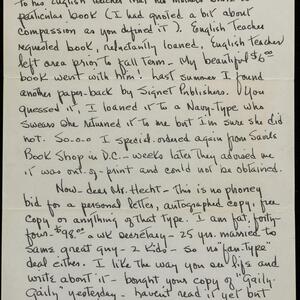 To his English teacher that his mother had a
particular book (I had quoted a bit about
compassion as you defined it). English teacher
requested book, reluctantly loaned, English teacher
left area prior to Fall term - My beautiful $6.00
book went with him! Last summer I found
another paper-back by Signet Publishers. You
guessed it, I loaned it to a Navy-Type who
swears she returned it to me but I'm sure she did
not. So-o-o I special-ordered again from Savile
Book Shop in D.C. - weeks later they advised me
it was out-of-print and could not be obtained.
Now - dear Mr. Hecht - This is no phoney
bid for a personal letter, autographed copy, free
copy or anything of that type. I am fat, forty-
four - $98.00 a wk secretary - 25 yrs. married to
same great guy - 2 kids - so no "fan-type"
deal either. I like the way you see life and
write about it - bought your copy of "Gaily
Gaily" yesterday - haven't read it yet but